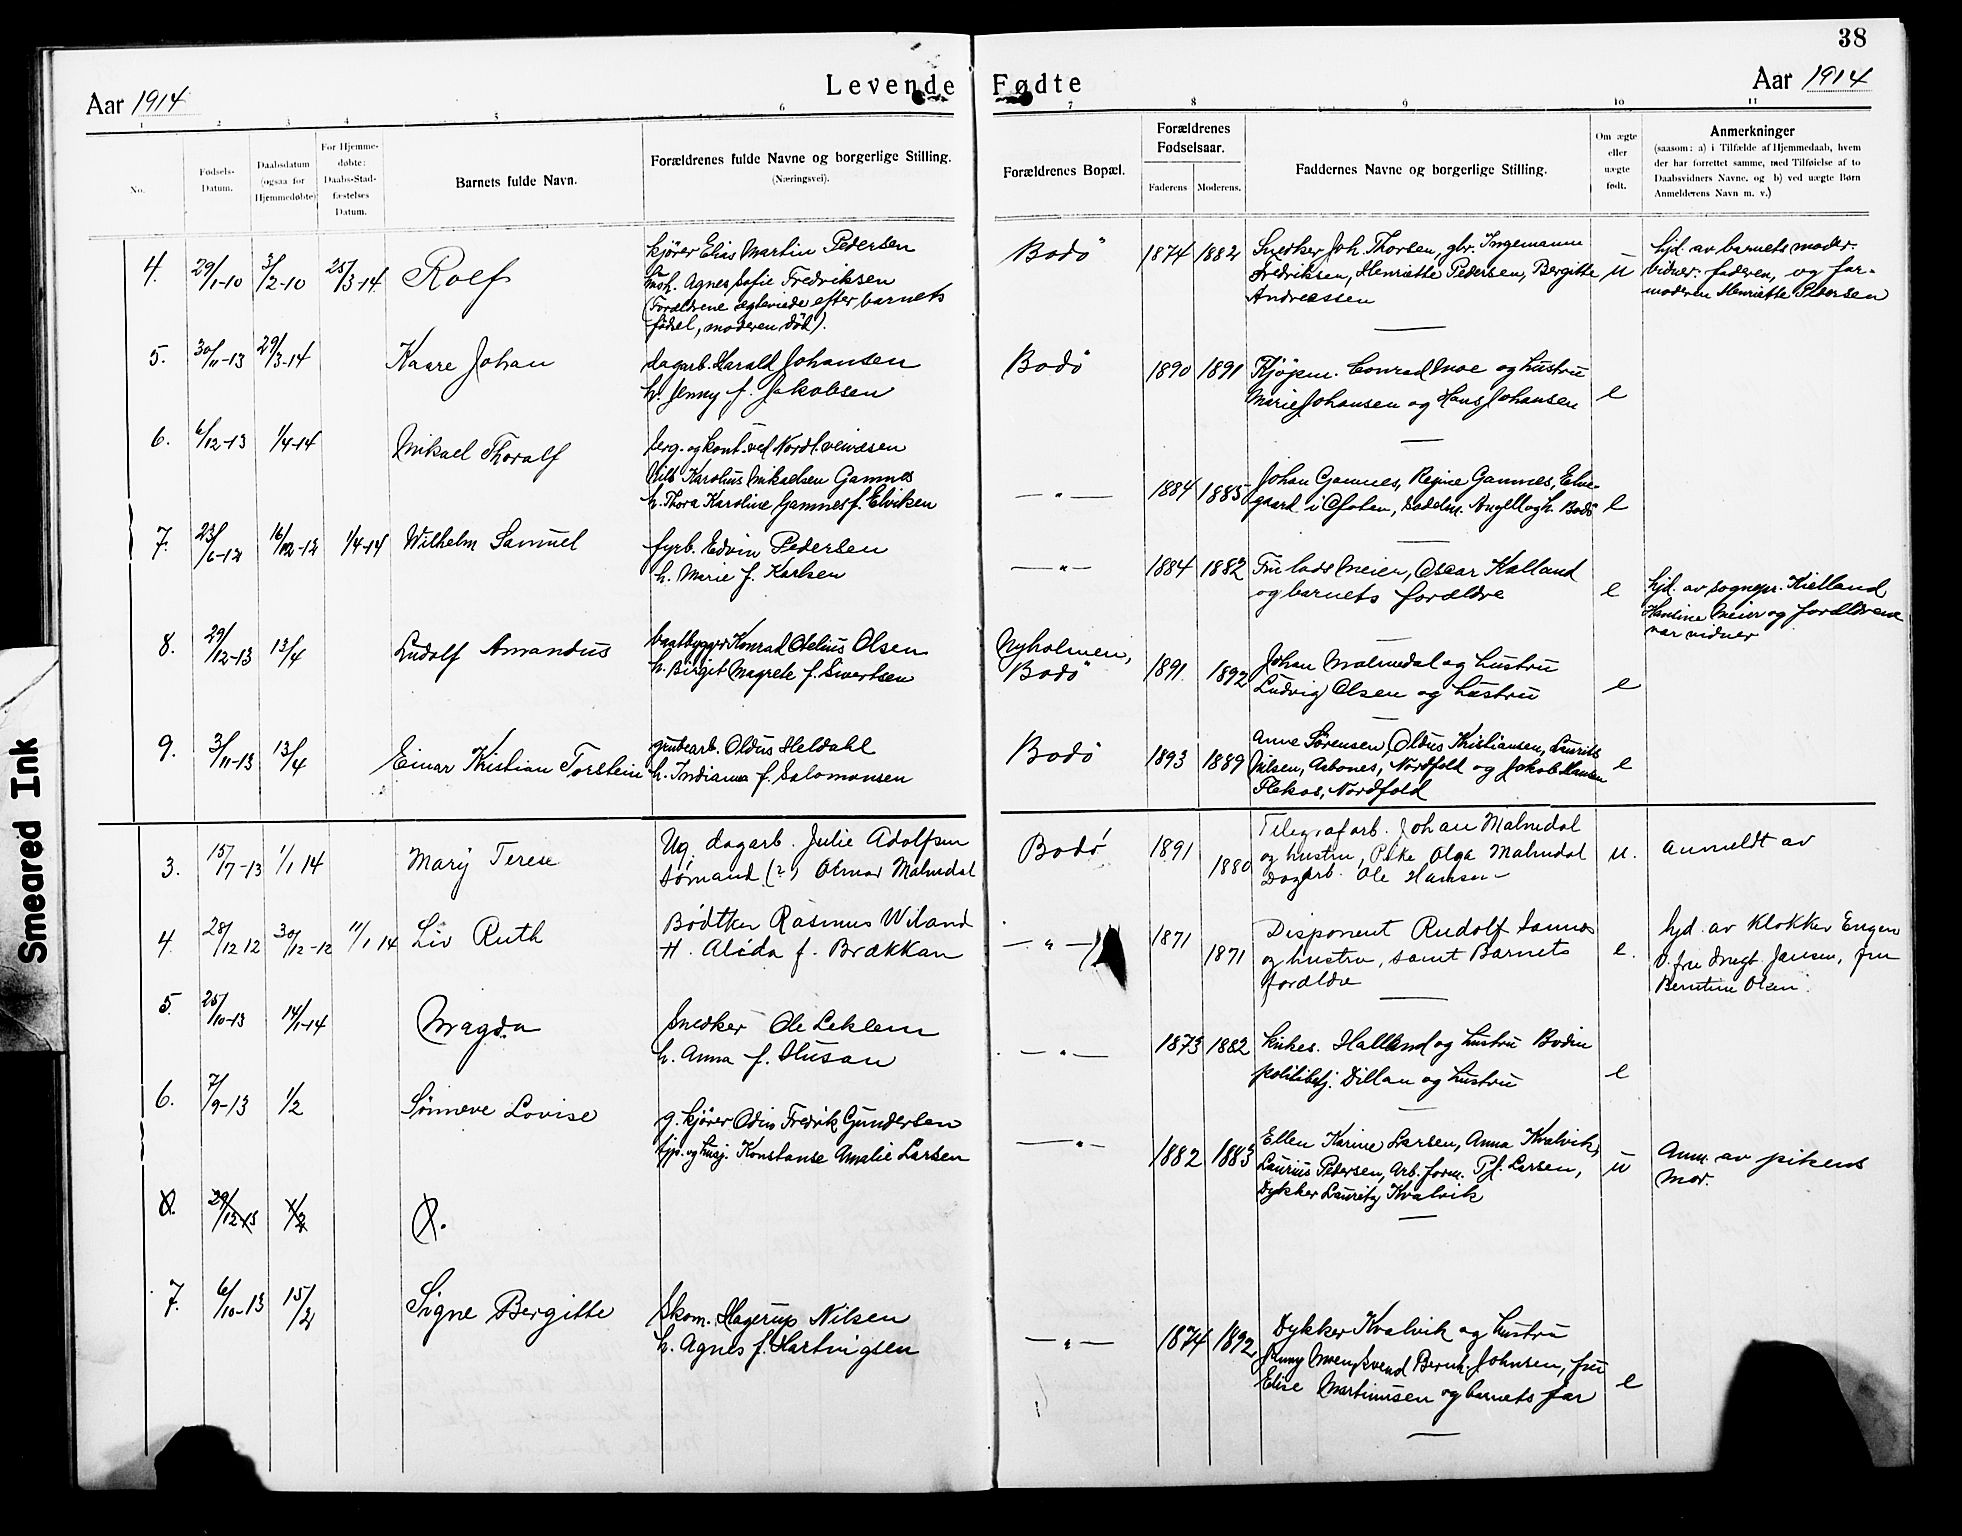 38
Levende Fødte
Aar 1914
Aar 1914
1 2 3 4 5 6 7 8 9 10 11
No.
Fødsels-
Datum.
Daabsdatum
(ogsaa for
Hjemmedøbte)
For Hjemme-
døbte:
Daabs-Stad-
fæstelses
Datum.
Barnets fulde Navn.
Forældrenes fulde Navne og borgerlige Stilling.
(Næringsvei).
Forældrenes Bopæl.
Forældrenes
Fødselsaar.
Faderens
Moderens.
Faddernes Navne og borgerlige Stilling.
Om ægte
eller
uægte
født.
Anmerkninger
(saasom: a) i Tilfælde af Hjemmedaab, hvem
der har forrettet samme, med Tilføielse af to
Daabsvidners Navne. og b) ved uægte Børn
Anmelderens Navn m. v.)
4. 29/1-10 3/2-10 25/3-14 Rolf
kjörer Elias Martin Pedersen
Agnes Sofie Fredriksen
(Forældrene ægteviede efter barnets
födsel, moderen död).
Bodö 1874 1882
Snedker Joh. Thorsen, gbr. Ingemann
Fredriksen, Henriette Pedersen, Bergitte
Andreassen
u
hjd. av barnets moder.
Vidner: faderen, og far-
moderen Henriette Pedersen
5. 30/11-13 29/3-14 Kaare Johan
dagarb. Harald Johansen
h. Jenny f. Jakobsen
Bodö 1890 1891
Kjøpm. Conrad Moe og hustru
Marie Johansen og Hans Johansen
e
6. 6/12-13 1/4-14 Mikael Thoralf
og kont. ved Nordl. veivæsen
Nils Karolius Mikaelsen Gamnes
h. Thora Karoline Gamnes f. Elviken
—"— 1884 1885
Johan Gamnes, Regine Gamnes, Elve-
gaard i Ofoten, Angell og h. Bodö
e
7. 23/6-12 16/12-12 1/4-14 Wilhelm Samuel
fyrb. Edvin Pedersen
h. Marie f. Karlsen
—"— 1884 1882
Fru Meier, Oscar Kalland
og barnets forældre
e
hjd. av sognepr. Kielland
Hansine Meier og forældrene
var vidner
8. 29/12-13 13/4 Ludolf Amandus
baatbygger Konrad Otelius Olsen
h. Birgit Magrete f. Sivertsen
Nyholmen,
Bodö
1891. 1892
Johan Malmedal og hustru
Ludvig Olsen og hustru
e
9. 3/11-13 13/4 Einar Kristian Torstein
grubearb. Oldus Heldahl
h. Indianna f. Salomonsen
Bodö 1893 1889
Anne Sörensen, Oldus Kristiansen, Laurits
Nilsen, Asbones, Nordfold og Jakob Hansen
Flekos, Nordfold
e
3. 15/7-13 1/1 14 Mary Terese
Ug. dagarb. Julie Adolfsen
Sømand (?) Otmar Malmedal
Bodø 1891 1880
Telegrafarb. Johan Malmedal
og hustru, Pike Olga Malmedal
Dagarb. Ole Hansen —
u.
anmeldt av
4. 28/12 12 30/12-12 11/1 14 Liv Ruth
Bødtker Rasmus Wiland
H. Alida f. Brækkan
—"— 1871 1871
Disponent Rudolf Sannes
og hustru, samt Barnets
forældre
e.
hjd. av Klokker Engen
V. fru Magt. Jansen, fru
Berntine Olsen.
5. 25/10-13 14/1-14 Magda
Snedker Ole Leklem
h. Anna f. Husan
—"— 1873 1882
Kirkes. Halland og hustru Bodin
politibetj. Dillan og hustru
e
6. 7/9-13 1/2 Sönneve Lovise
g. kjörer Odin Fredrik Gundersen
tjp. og husj. Konstanse Amalie Larsen
—"— 1882 1883
Ellen Karine Larsen, Anna Kvalvik,
Laurius Pedersen, Arb. form. P. Larsen,
Dykker Lauritz Kvalvik
u
Anm. av pikens
mor.
29/12-13 1/2
7. 6/10-13 15/2 Signe Bergitte
Skom. Hagerup Nilsen
h. Agnes f. Hartvigsen
—"— 1874 1892
Dykker Kvalvik og hustru
Jenny Moen, Svend Bernh. Johnsen, fru
Elise Martinussen og barnets far
e
Smeared Ink